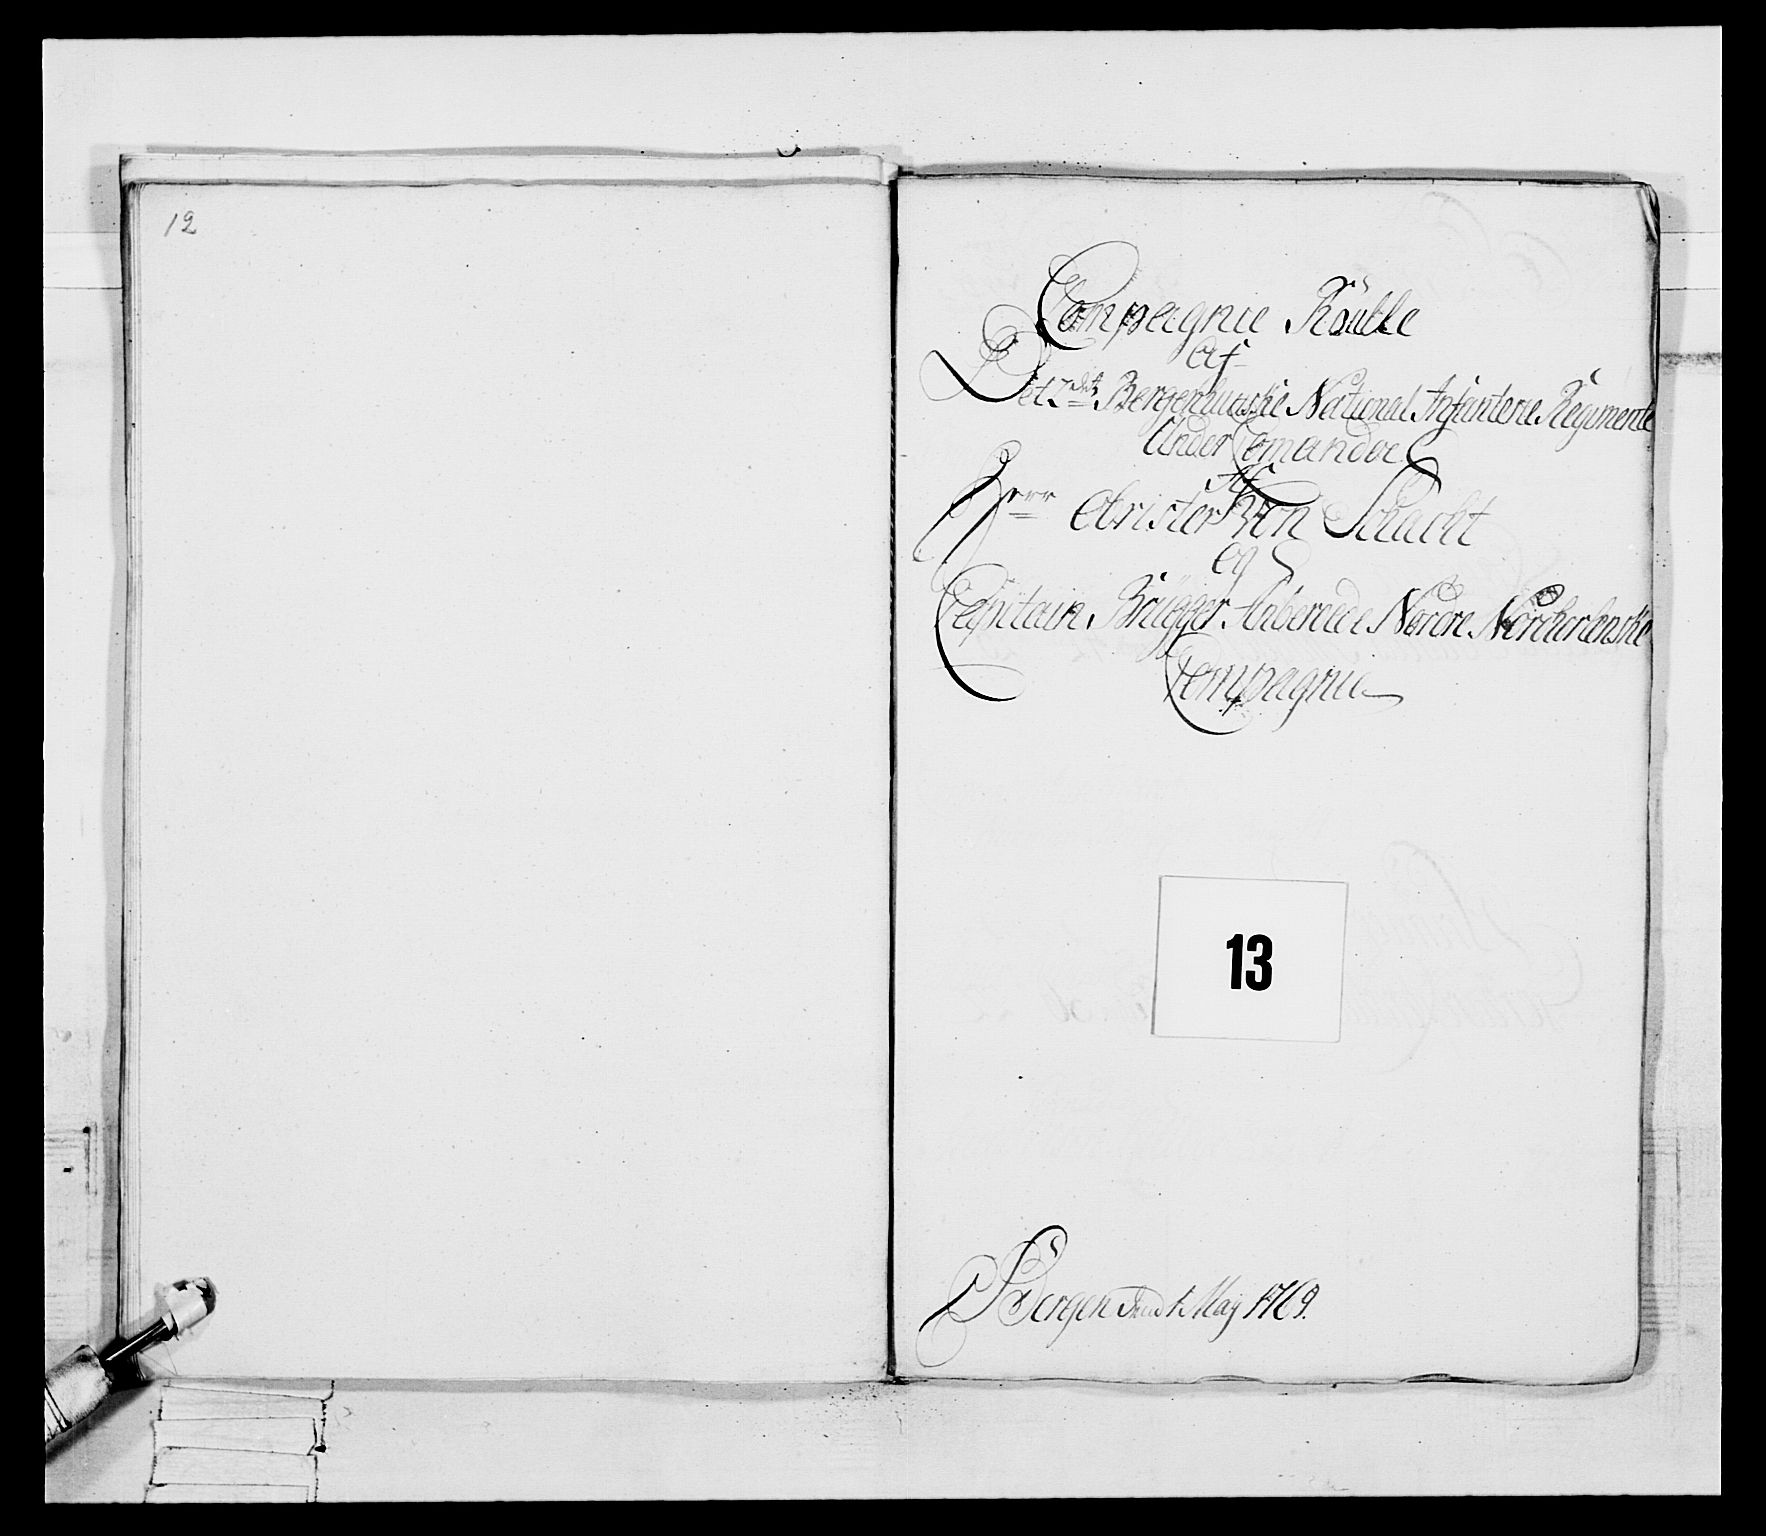 12
Compagnie Rulle
af
Det 2det Bergenhuuske National Infanterie Regimente
Under Comando
Af
Herr Obrister Von Schacht
og
Capitain Brügger Anberoede Nordre Nordhorlenske
Compagnie
13
Bergen d 1 May 1769.